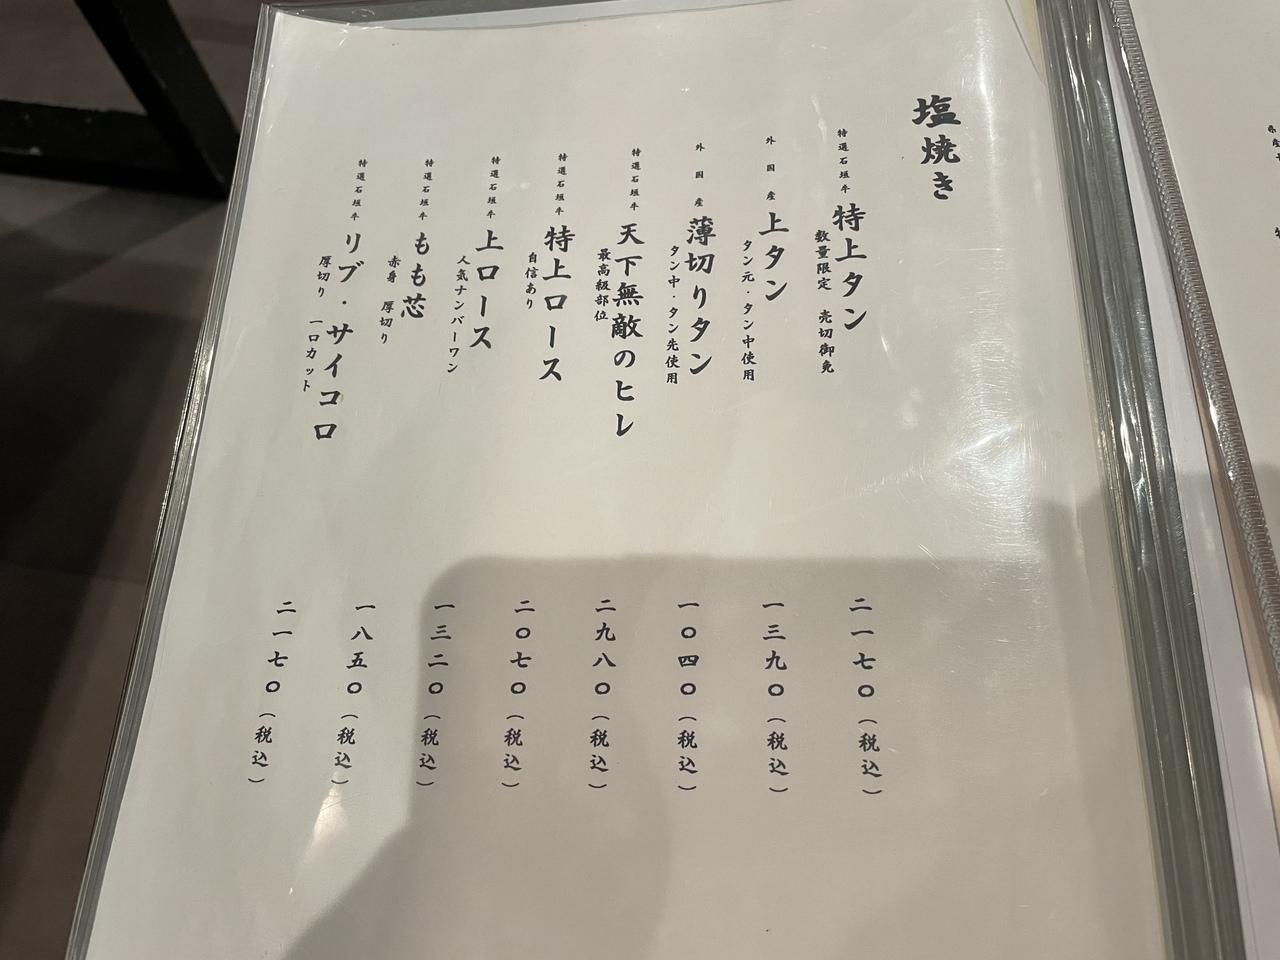 塩焼き
特選石垣牛 特上タン
数量限定 売切御免
二一七〇(税込)
外国産 上タン
タン元・タン中使用
一三九〇(税込)
外国産 薄切りタン
タン中・タン先使用
一〇四〇(税込)
特選石垣牛 天下無敵のヒレ
最高級部位
二九八〇(税込)
特選石垣牛 特上ロース
自信あり
二〇七〇(税込)
特選石垣牛 上ロース
人気ナンバーワン
一三二〇(税込)
特選石垣牛 もも芯
赤身 厚切り
一八五〇(税込)
特選石垣牛 リブ・サイコロ
厚切り 一口カット
二一七〇(税込)